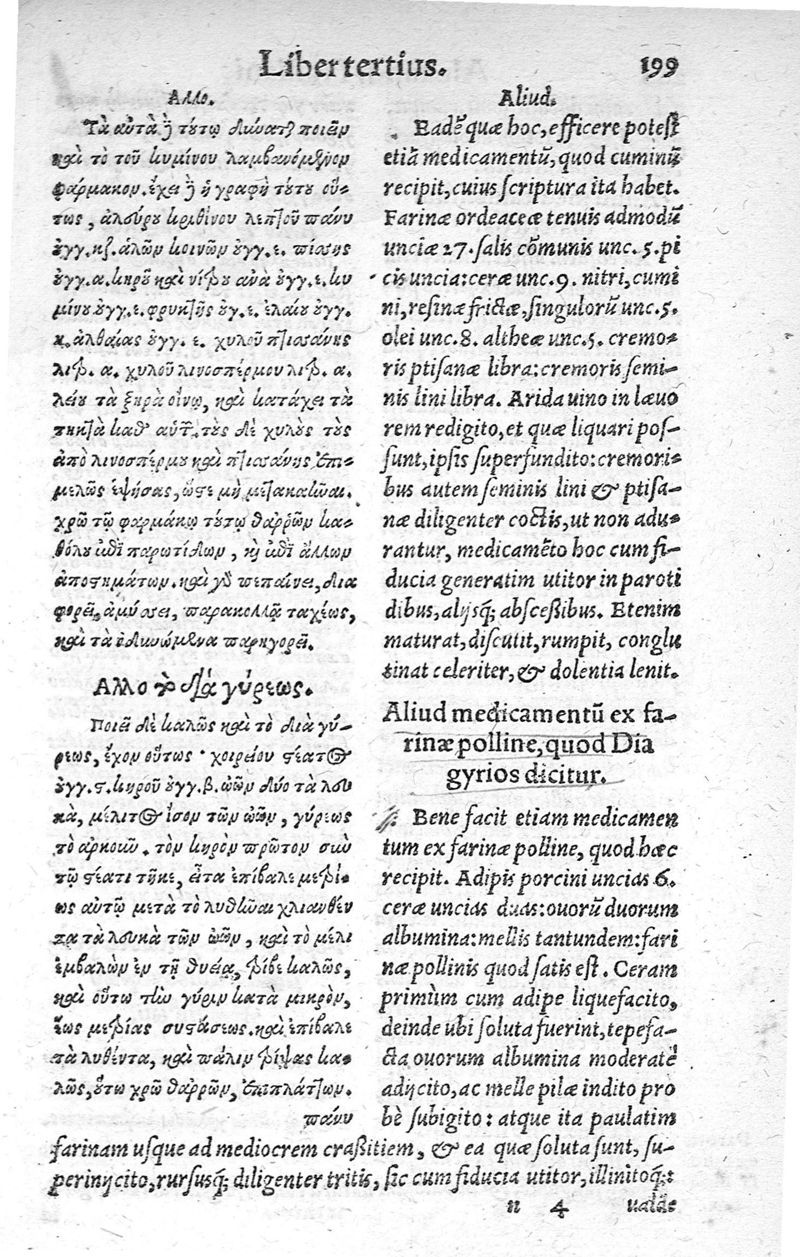 Liber tertius. 199
Αλλο.
Τὰ αὐτὰ ἢ τύτῳ δύναται ποιεῖν
καὶ τὸ τοῦ κυμίνου λαμβανόμενον
φάρμακον. ἔχει ἢ ἡ γραφὴ τύτυ οὕ-
τως, ἀλεύρυ κριθίνου λεπτοῦ πάνυ
ὀυγγ. κζ. ἁλῶν κοινῶν ὀυγγ. ε. πίσσης
ὀυγγ. α. κηροῦ καὶ νίτρυ ἀνὰ ὀυγγ. ε. κυ
μίνυ ὀυγγ. ε. φρυκτῆς ὀυγ. ε. ἐλαίυ ὀυγγ.
κ. ἀλθαίας ὀυγγ. ε. χυλοῦ πτισάνης
λιτρ. α. χυλοῦ λινοσπέρμου λιτρ. α.
λείυ τὰ ξηρὰ οἴνῳ, καὶ κατάχει τὰ
τηκτὰ καθ᾽ αὑτ. τὸς δὲ χυλὸς τὸς
ἀπὸ λινοσπέρμυ καὶ πτισάνης ἐπι-
μελῶς ἑψήσας, ὥστε μὴ μετακαῶναι.
χρῶ τῷ φαρμάκῳ τύτῳ θαῤῥῶν κα-
θόλυ ἐπὶ παρωτίδων, κὴ ἐπὶ ἄλλων
ἀποστημάτων. καὶ γὸ πεπαίνει, δια
φορεῖ, ἀμύσσει, παρακολλᾷ ταχέως,
καὶ τὰ ὀδυνώμενα παρηγορεῖ.
Αλλο τὸ διὰ γύρεως.
Ποιεῖ δὲ καλῶς καὶ τὸ διὰ γύ-
ρεως, ἔχον οὕτως· χοιρείου στέατος
ὀυγγ. ϛ. κηροῦ ὀυγγ. β. ὠῶν δύο τὰ λευ
κὰ, μέλιτος ἴσον τῶν ὠῶν, γύρεως
τὸ ἀρκοῦν. τὸν κηρὸν πρῶτον σὺν
τῷ στέατι τῆκε, εἶτα ἐπίβαλε μετρί-
ως αὐτῷ μετὰ τὸ λυθῆναι χλιανθέν
τα τὰ λευκὰ τῶν ὠῶν, καὶ τὸ μέλι
ἐμβαλὼν ἐν τῇ θυείᾳ, τρίβε καλῶς,
καὶ οὕτω τὴν γύριν κατὰ μικρὸν,
ἕως μετρίας συστάσεως. καὶ ἐπίβαλε
τὰ λυθέντα, καὶ πάλιν τρίψας κα-
λῶς, ὕτω χρῶ θαῤῥῶν, ἐπιπλάττων.
πάνυ
Aliud.
Eadẽ quæ hoc, efficere potest
etiã medicamentũ, quod cuminũ
recipit, cuius scriptura ita habet.
Farinæ ordeaceæ tenuis admodũ
unciæ 27. salis cõmunis unc. 5. pi
cis uncia: ceræ unc. 9. nitri, cumi
ni, resinæ frictæ, singulorũ unc. 5.
olei unc. 8. altheæ unc. 5. cremo-
ris ptisanæ libra: cremoris semi-
nis lini libra. Arida uino in læuo
rem redigito, et quæ liquari pos-
sunt, ipsis superfundito: cremori-
bus autem seminis lini & ptisa-
næ diligenter coctis, ut non adu-
rantur, medicamẽto hoc cum fi-
ducia generatim utitor in paroti
dibus, alijsq; abscessibus. Etenim
maturat, discutit, rumpit, conglu
tinat celeriter, & dolentia lenit.
Aliud medicamentũ ex fa-
rinæ polline, quod Dia
gyrios dicitur.
Bene facit etiam medicamen
tum ex farinæ polline, quod hæc
recipit. Adipis porcini uncias 6.
ceræ uncias duas: ouorũ duorum
albumina: mellis tantundem: fari
næ pollinis quod satis est. Ceram
primùm cum adipe liquefacito,
deinde ubi soluta fuerint, tepefa-
cta ouorum albumina moderatè
adijcito, ac melle pilæ indito pro
bè subigito: atque ita paulatim
farinam usque ad mediocrem crassitiem, & ea quæ soluta sunt, su-
perinijcito, rursusq; diligenter tritis, sic cum fiducia utitor, illinitoq;:
n 4 ualde